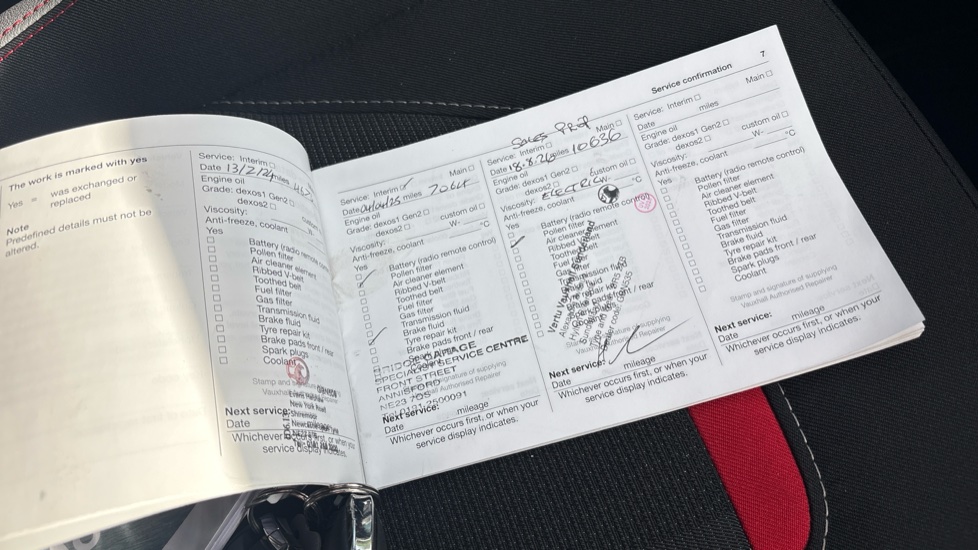 The work is marked with yes
Yes = was exchanged or
replaced
Note
Predefined details must not be
altered.
Service: Interim
Date 13/2/24 miles
Engine oil
Grade: dexos1 Gen2
dexos2
Viscosity:
Anti-freeze, coolant
Yes
Battery (radio remote
Pollen filter
Air cleaner element
Ribbed V-belt
Toothed belt
Fuel filter
Gas filter
Transmission fluid
Brake fluid
Tyre repair kit
Brake pads front / rear
Spark plugs
Coolant
Stamp and
Next service:
Date
Whichever occurs first, or when you
service display indicates.
Main
Service: Interim
Date miles
Engine oil
Grade: dexos1 Gen2
dexos2 custom oil
Viscosity: W- °C
Anti-freeze, coolant
Yes
Battery (radio remote control)
Pollen filter
Air cleaner element
Ribbed V-belt
Toothed belt
Fuel filter
Gas filter
Transmission fluid
Brake fluid
Tyre repair kit
Brake pads front / rear
Spark plugs
GARAGE
SPECIALIST SERVICE CENTRE
FRONT STREET
ANNISFORD
NE23 7QS
Tel: 0191 2500091
signature of supplying
Authorised Repairer
Next service:
Date mileage
Whichever occurs first, or when your
service display indicates.
Sales Prep
Service: Interim Main
Date miles 10636
Engine oil
Grade: dexos1 Gen2
dexos2 custom oil
Viscosity: ELECTRIC W- °C
Anti-freeze, coolant
Yes
Battery (radio remote control)
Pollen filter
Air cleaner element
Ribbed V-belt
Toothed belt
Fuel filter
Gas filter
Transmission fluid
Brake fluid
Tyre repair kit
Brake pads front / rear
Spark plugs
Coolant
Vertu Vauxhall Sunderland
signature of supplying
Authorised Repairer
Next service:
Date mileage
Whichever occurs first, or when your
service display indicates.
7
Service confirmation
Service: Interim Main
Date miles
Engine oil
Grade: dexos1 Gen2
dexos2 custom oil
Viscosity: W- °C
Anti-freeze, coolant
Yes
Battery (radio remote control)
Pollen filter
Air cleaner element
Ribbed V-belt
Toothed belt
Fuel filter
Gas filter
Transmission fluid
Brake fluid
Tyre repair kit
Brake pads front / rear
Spark plugs
Coolant
Stamp and signature of supplying
Vauxhall Authorised Repairer
Next service:
Date mileage
Whichever occurs first, or when your
service display indicates.